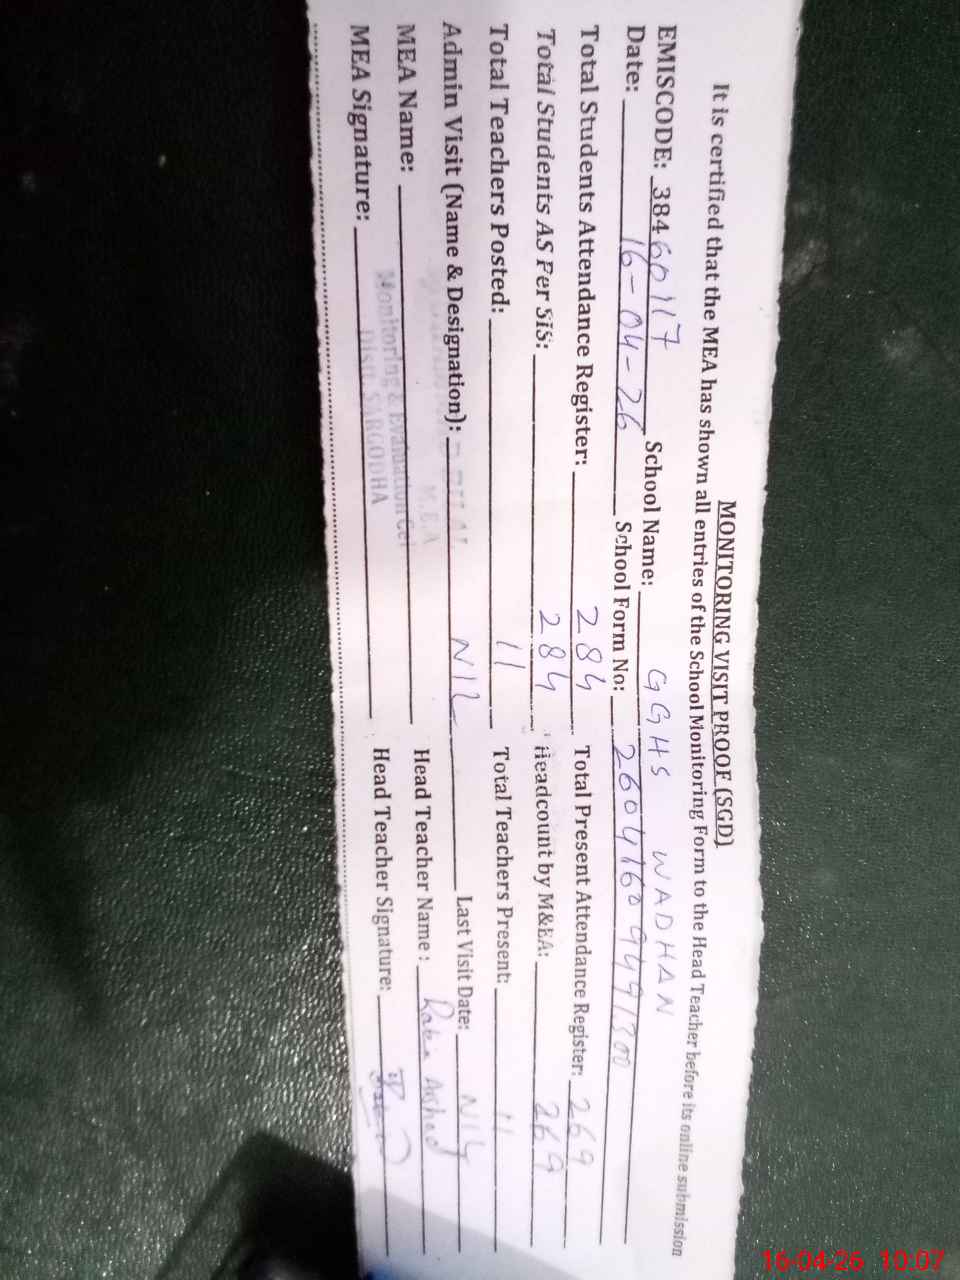 MONITORING VISIT PROOF (SGD)
It is certified that the MEA has shown all entries of the School Monitoring Form to the Head Teacher before its online submission
EMISCODE: 38460117 School Name: GGHS WADHAN
Date: 16-04-26 School Form No: 26041609991300
Total Students Attendance Register: 284 Total Present Attendance Register: 269
Total Students AS Per SIS: 284 Headcount by M&EA: 269
Total Teachers Posted: 11 Total Teachers Present: 11
Admin Visit (Name & Designation): NIL Last Visit Date: NIL
MEA Name: Head Teacher Name: Rabia Arshad
MEA Signature: Head Teacher Signature:
M.E.A
Monitoring & Evaluation Cel
Distt. SARGODHA
16-04-26 10:07